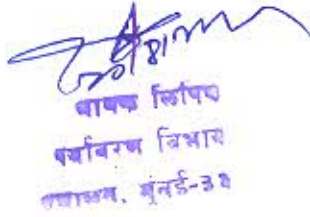 वापक लिपिक
पर्यावरण विभाग
मंत्रालय, मुंबई-३२